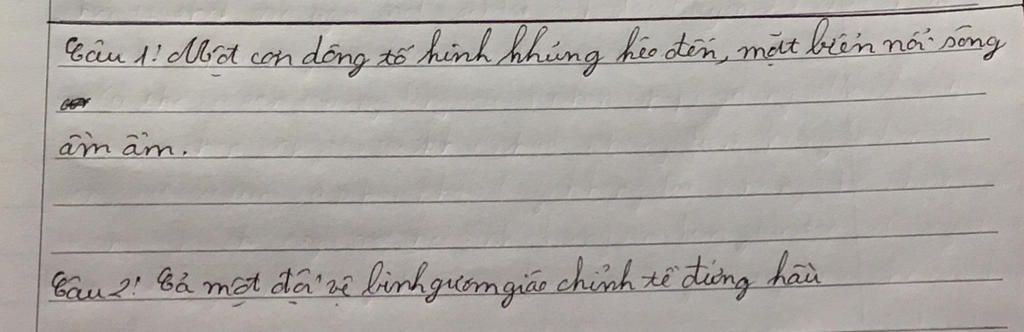 Câu 1: Một cơn dông tố kinh khủng kéo đến, mặt biển nổi sóng
ầm ầm.
Câu 2: Cả một đội vệ binh gươm giáo chỉnh tề đứng hầu